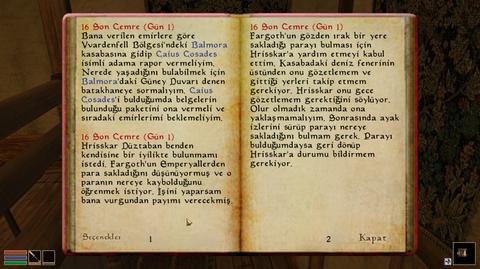 16 Son Cemre (Gün 1)
Bana verilen emirlere göre
Vvardenfell Bölgesi'ndeki Balmora
kasabasına gidip Caius Cosades
isimli adama rapor vermeliyim.
Nerede yaşadığını bulabilmek için
Balmora'daki Güney Duvarı denen
batakhaneye sormalıyım. Caius
Cosades'i bulduğumda belgelerin
bulunduğu paketini ona vermeli ve
sıradaki emirlerimi beklemeliyim.
16 Son Cemre (Gün 1)
Hrisskar Düztaban benden
kendisine bir iyilikte bulunmamı
istedi. Fargoth'un Emperyallerden
para sakladığını düşünüyormuş ve o
paranın nereye kaybolduğunu
öğrenmek istiyor. İşini yaparsam
bana vurgundan payımı verecekmiş.
Seçenekler
1
16 Son Cemre (Gün 1)
Fargoth'un gözden ırak bir yere
sakladığı parayı bulması için
Hrisskar'a yardım etmeyi kabul
ettim. Kasabadaki deniz fenerinin
üstünden onu gözetlemem ve
gittiği yerleri takip etmem
gerekiyor. Hrisskar onu gece
gözetlemem gerektiğini söylüyor.
Olur olmadık zamanda ona
yaklaşmamalıyım. Sonrasında ayak
izlerini sürüp parayı nereye
sakladığını bulmam gerek. Parayı
bulduğumdaysa geri dönüp
Hrisskar'a durumu bildirmem
gerekiyor.
2
Kapat